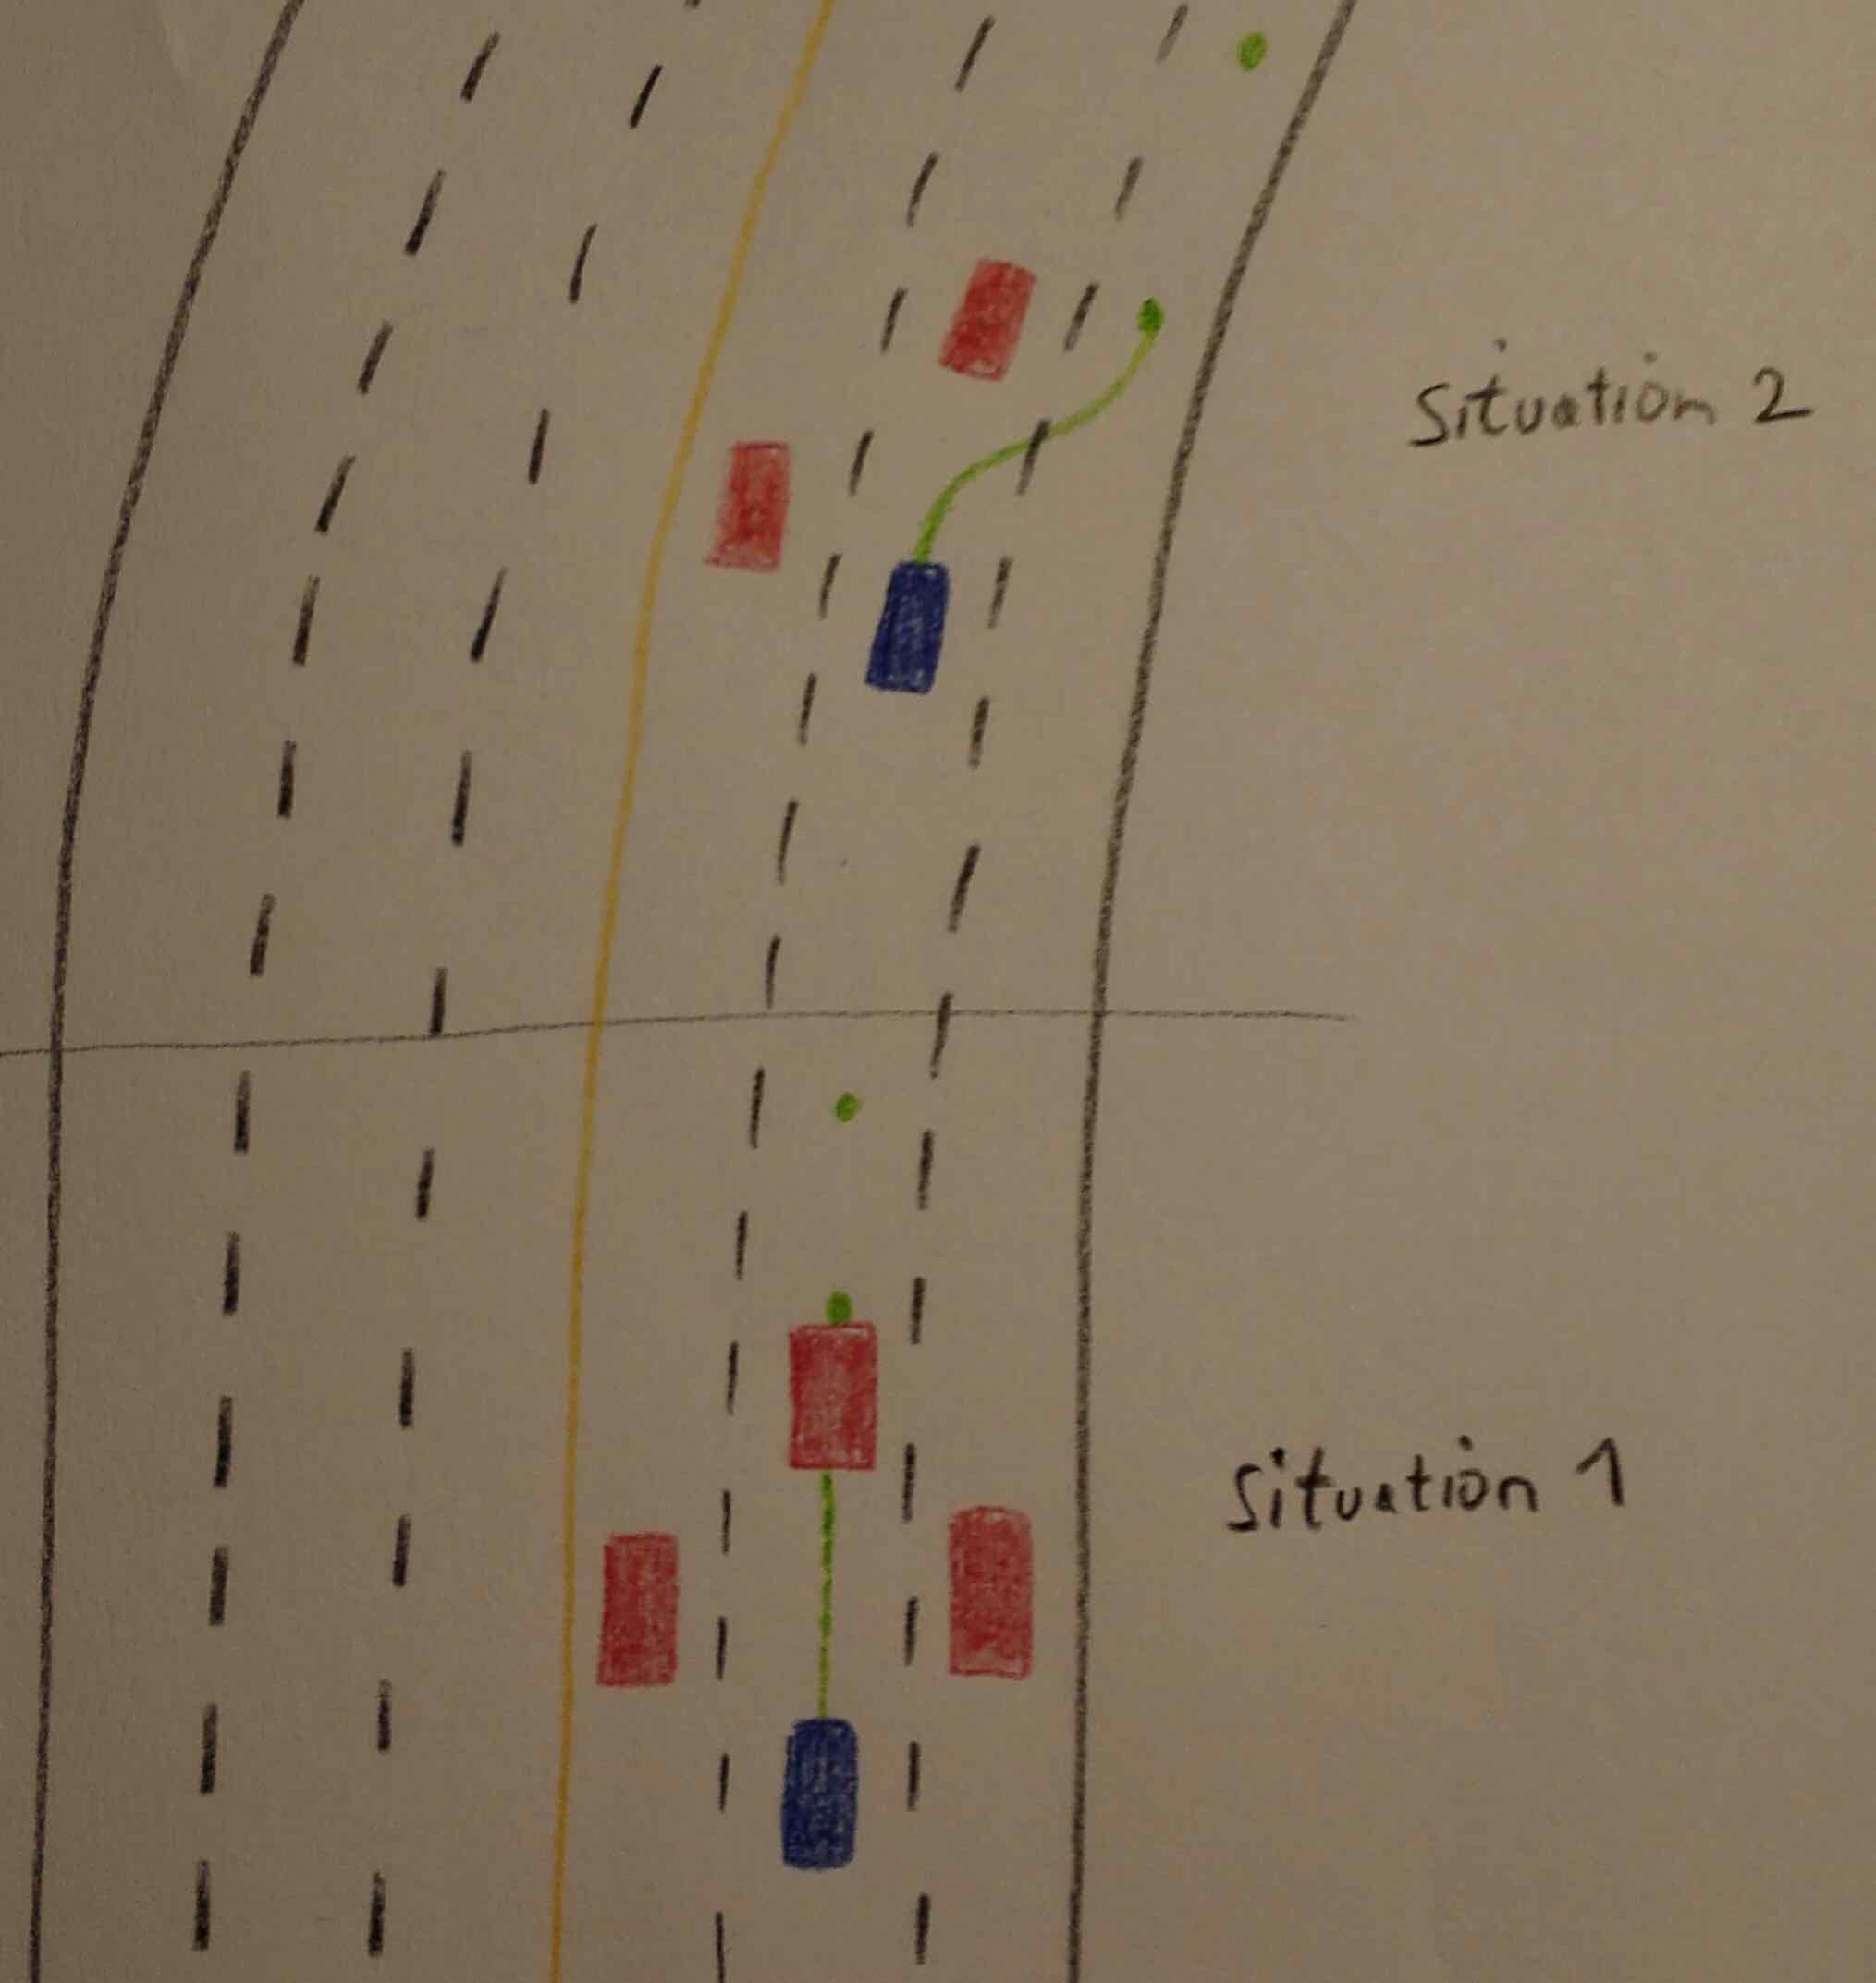 Situation 2
Situation 1